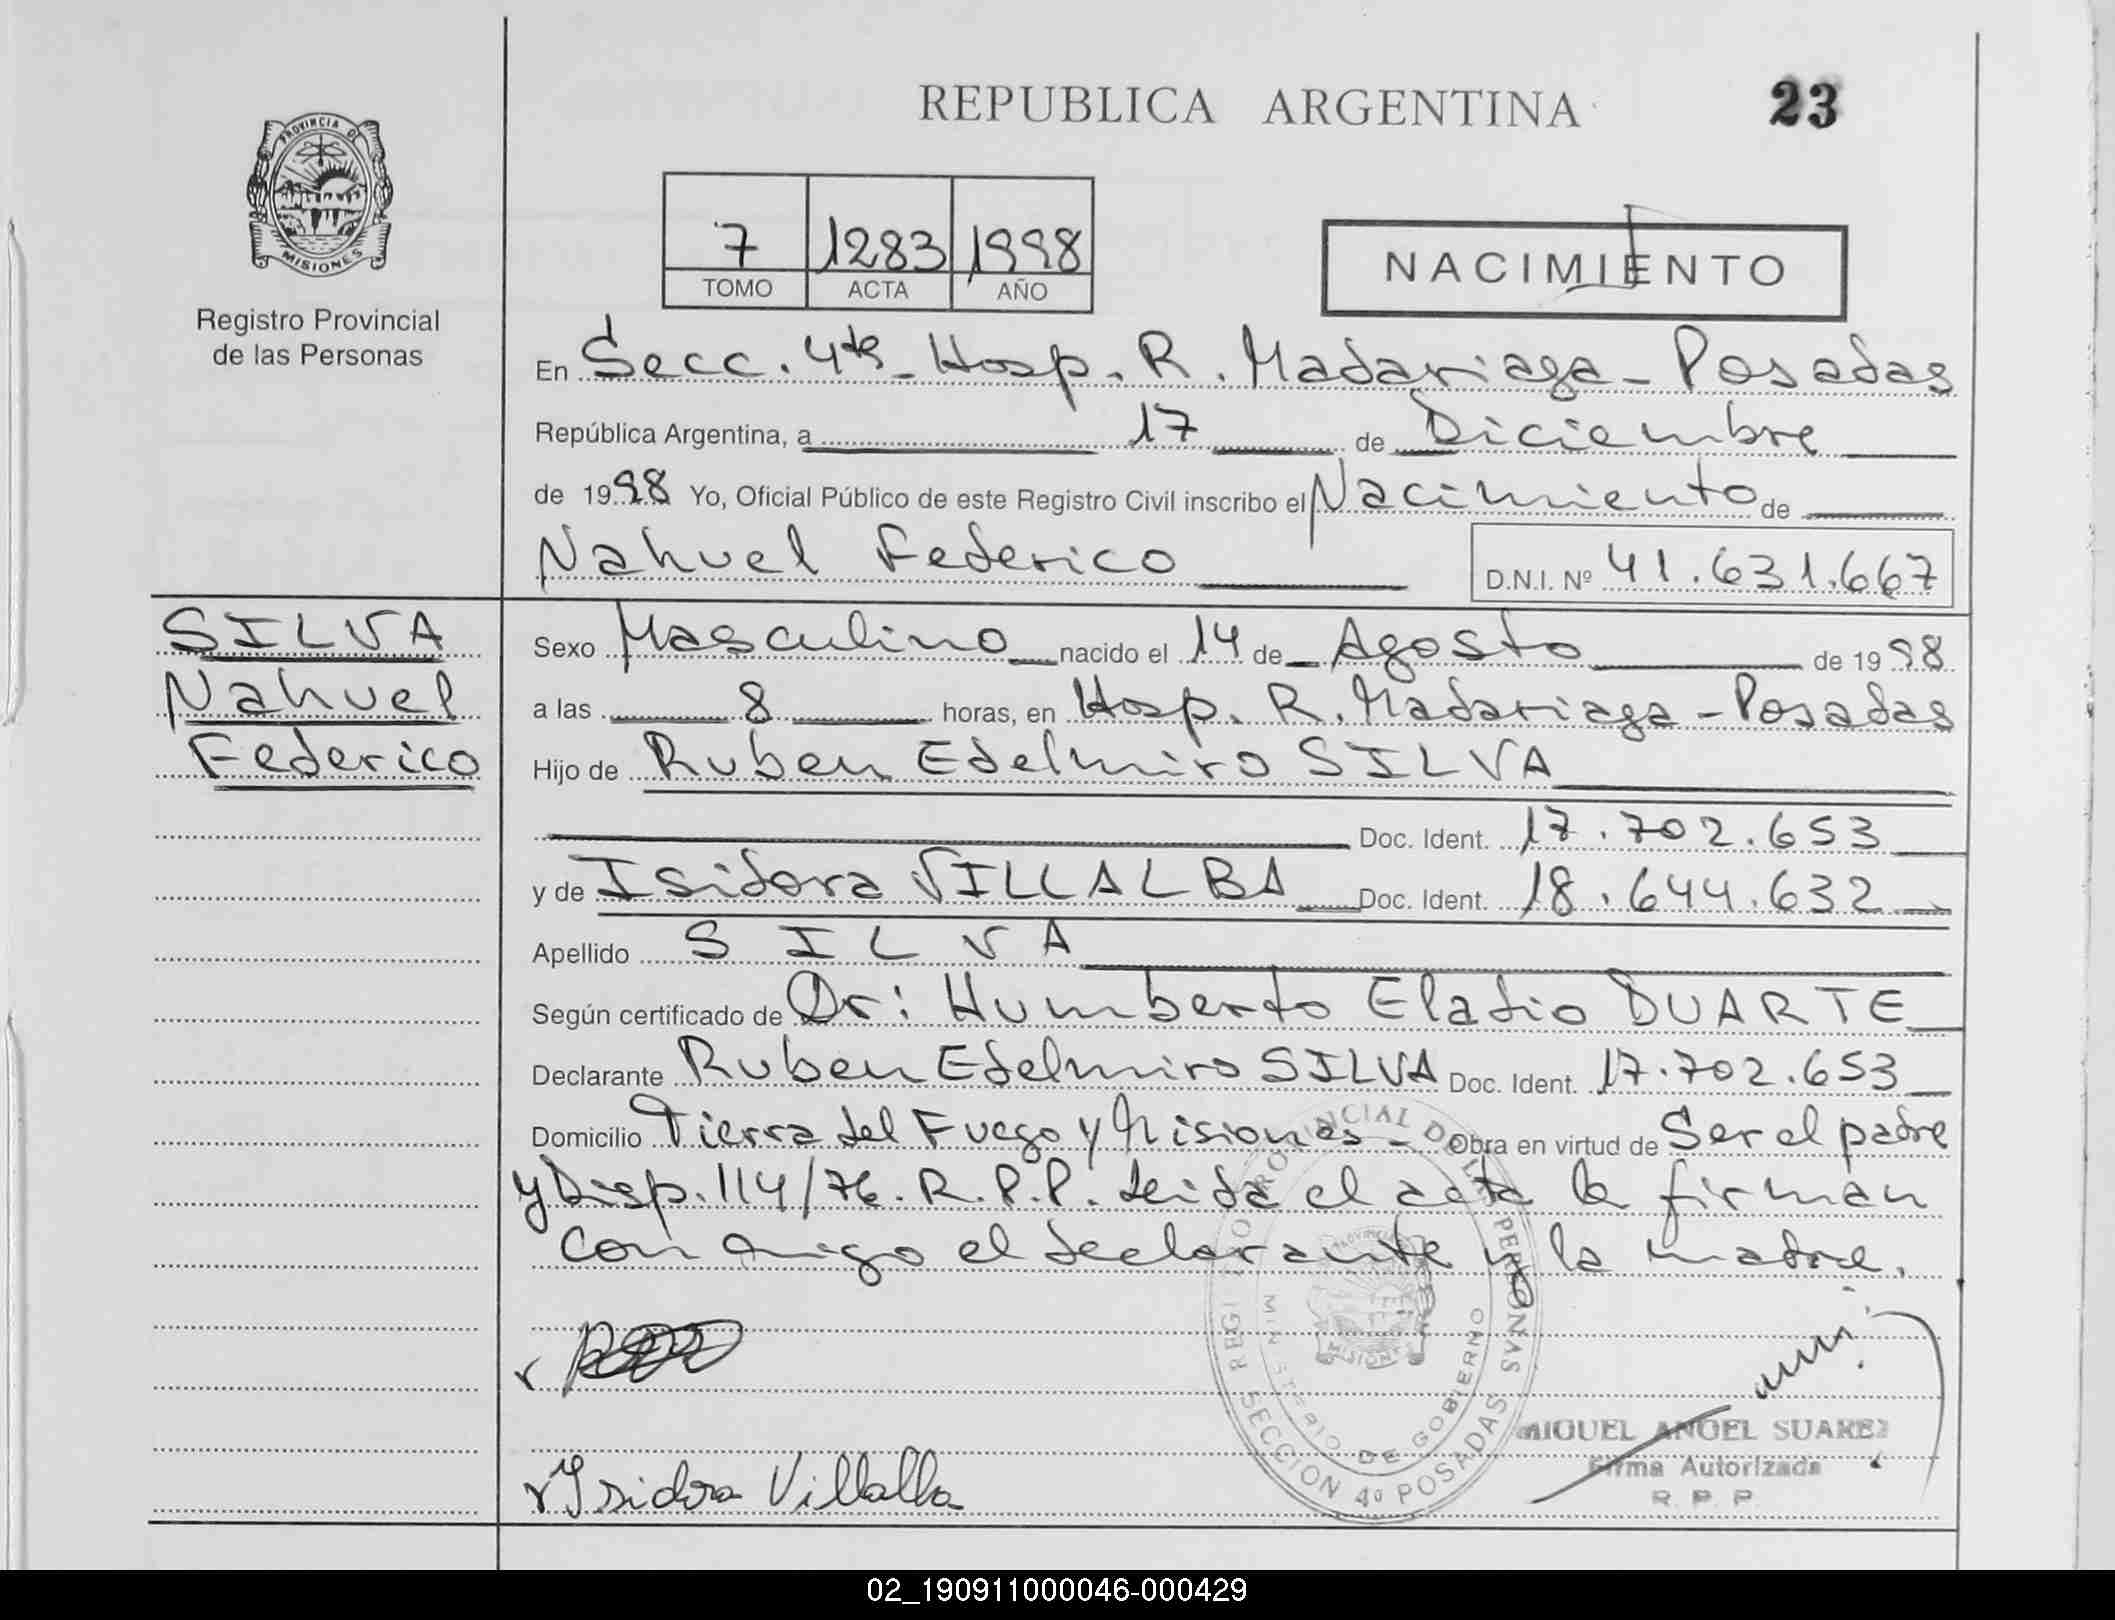 REPUBLICA ARGENTINA
23
PROVINCIA DE
MISIONES
Registro Provincial
de las Personas
7 1283 1998
TOMO ACTA AÑO
NACIMIENTO
En Secc. 4ta - Hosp. R. Madariaga - Posadas
República Argentina, a 17 de Diciembre
de 1998 Yo, Oficial Público de este Registro Civil inscribo el Nacimiento de
Nahuel Federico D.N.I. Nº 41.631.667
SILVA
Nahuel
Federico
Sexo Masculino nacido el 14 de Agosto de 1998
a las 8 horas, en Hosp. R. Madariaga - Posadas
Hijo de Ruben Edelmiro SILVA
Doc. Ident. 17.702.653
y de Isidora VILLALBA Doc. Ident. 18.644.632
Apellido SILVA
Según certificado de Dr: Humberto Eladio DUARTE
Declarante Ruben Edelmiro SILVA Doc. Ident. 17.702.653
Domicilio Tierra del Fuego y Misiones - Obra en virtud de Ser el padre
y Disp. 114/76. R.P.P. Leida el acta la firman
con migo el declarante y la madre.
REGISTRO PROVINCIAL DE LAS PERSONAS
MINISTERIO DE GOBIERNO
SECCION 4º POSADAS
MISIONES
MIGUEL ANGEL SUAREZ
Firma Autorizada
R. P. P.
Isidora Villalba
02_190911000046-000429